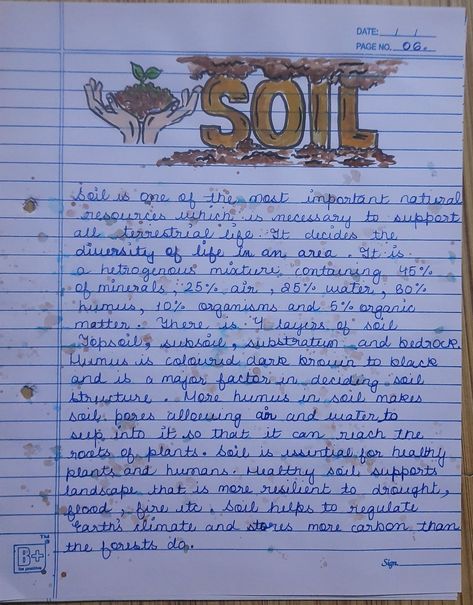 DATE: / /
PAGE NO. 06.
SOIL
Soil is one of the most important natural
resources which is necessary to support
all terrestrial life. It decides the
diversity of life in an area. It is
a hetrogenous mixture containing 45%
of minerals, 25% air, 25% water, 80%
humus, 10% organisms and 5% organic
matter. There is 4 layers of soil
Topsoil, subsoil, substratum and bedrock.
Humus is coloured dark brown to black
and is a major factor in deciding soil
structure. More humus in soil makes
soil pores allowing air and water to
seep into it so that it can reach the
roots of plants. Soil is essential for healthy
plants and humans. Healthy soil supports
landscape that is more resilient to drought,
flood, fire etc. Soil helps to regulate
Earth's climate and stores more carbon than
the forests do.
B+
TM
be positive
Sign